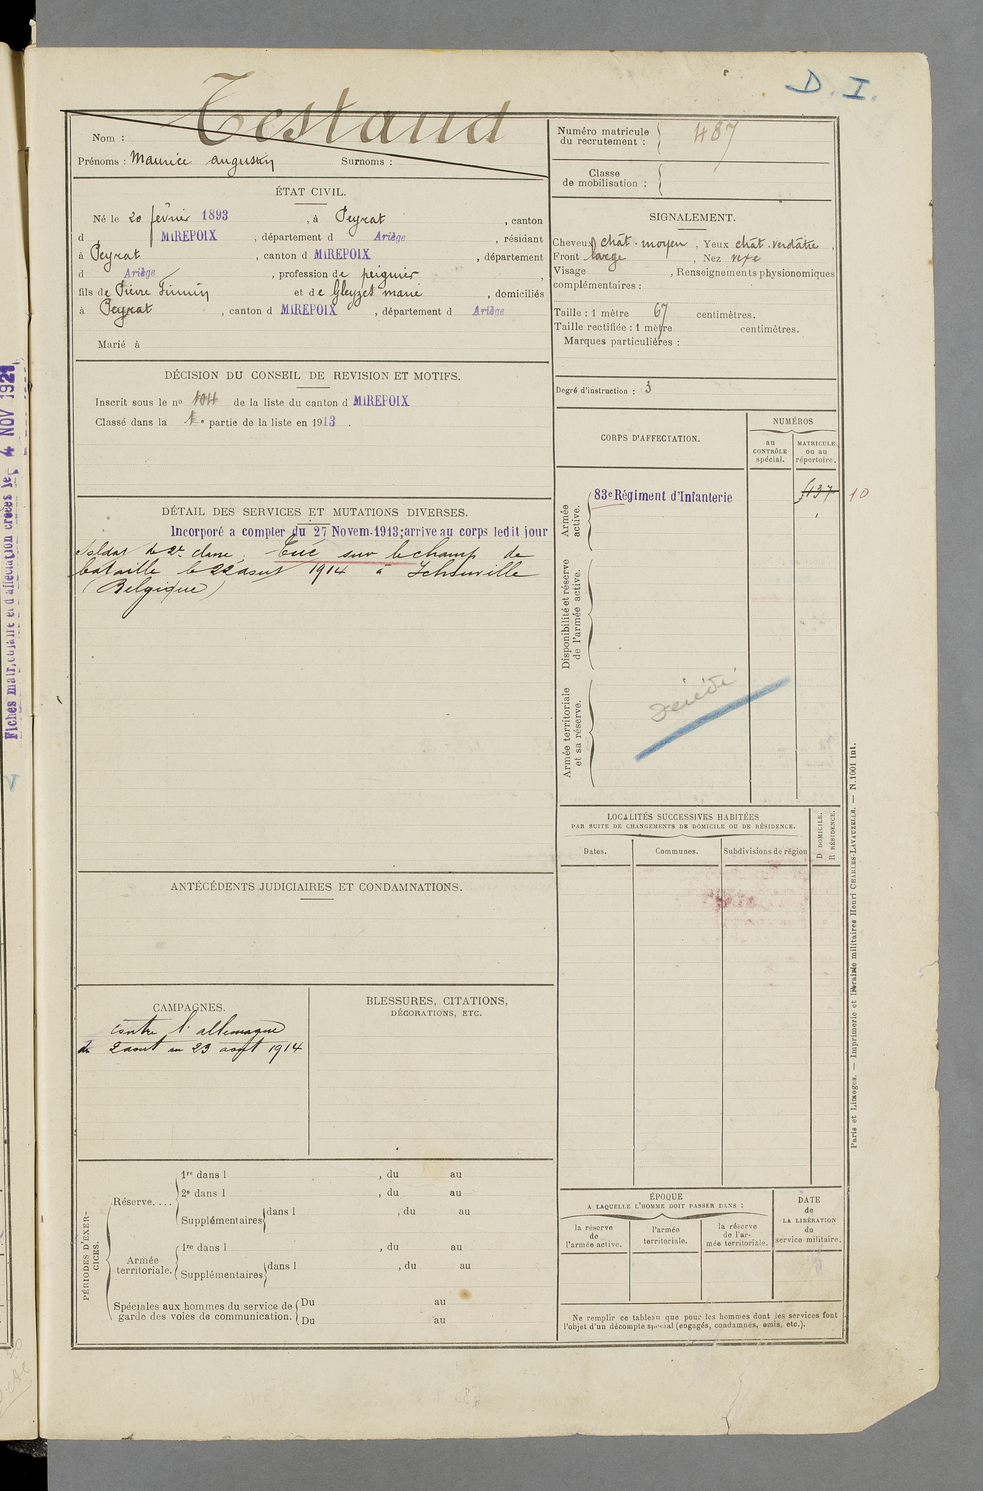 D. I.
Testaud
Nom :
Prénoms : Maurice Augustin Surnoms :
Numéro matricule du recrutement : 487
Classe de mobilisation :
ÉTAT CIVIL.
Né le 20 février 1893, à Peyrat, canton
d MIREPOIX, département d Ariège, résidant
à Peyrat, canton d MIREPOIX, département
d Ariège, profession de peignier
fils de Pierre Firmin et de Gleyzes marie, domiciliés
à Peyrat, canton d MIREPOIX, département d Ariège
Marié à
SIGNALEMENT.
Cheveux chât. moyen, Yeux chat. verdâtre,
Front large, Nez
Visage, Renseignements physionomiques
complémentaires :
Taille : 1 mètre 67 centimètres.
Taille rectifiée : 1 mètre centimètres.
Marques particulières :
Degré d'instruction : 3
DÉCISION DU CONSEIL DE REVISION ET MOTIFS.
Inscrit sous le nº 104 de la liste du canton d MIREPOIX
Classé dans la 1e partie de la liste en 1913.
DÉTAIL DES SERVICES ET MUTATIONS DIVERSES.
Incorporé a compter du 27 Novem.1913; arrive au corps ledit jour
Soldat de 2e classe. Tué sur le champ de
bataille le 22 aout 1914 à
(Belgique)
CORPS D'AFFECTATION.
NUMÉROS
au CONTRÔLE spécial.
MATRICULE ou au répertoire.
Armée active.
83e Régiment d'Infanterie
137
10
Disponibilité et réserve de l'armée active.
Armée territoriale et sa réserve.
Décédé
LOCALITÉS SUCCESSIVES HABITÉES
PAR SUITE DE CHANGEMENTS DE DOMICILE OU DE RÉSIDENCE.
Dates.
Communes.
Subdivisions de région
D DOMICILE.
R RÉSIDENCE.
ANTÉCÉDENTS JUDICIAIRES ET CONDAMNATIONS.
CAMPAGNES.
contre l'allemagne
du 2 aout au 23 aout 1914
BLESSURES, CITATIONS,
DÉCORATIONS, ETC.
PÉRIODES D'EXERCICES.
Réserve....
1re dans l , du au
2e dans l , du au
Supplémentaires dans l , du au
Armée territoriale.
1re dans l , du au
Supplémentaires dans l , du au
Spéciales aux hommes du service de garde des voies de communication.
Du au
Du au
ÉPOQUE
A LAQUELLE L'HOMME DOIT PASSER DANS :
la réserve de l'armée active.
l'armée territoriale.
la réserve de l'armée territoriale.
DATE de LA LIBÉRATION du service militaire.
Ne remplir ce tableau que pour les hommes dont les services font
l'objet d'un décompte spécial (engagés, condamnés, omis, etc.).
Paris et Limoges. — Imprimerie et librairie militaires Henri CHARLES-LAVAUZELLE. — N. 1001 int.
4 NOV 1921